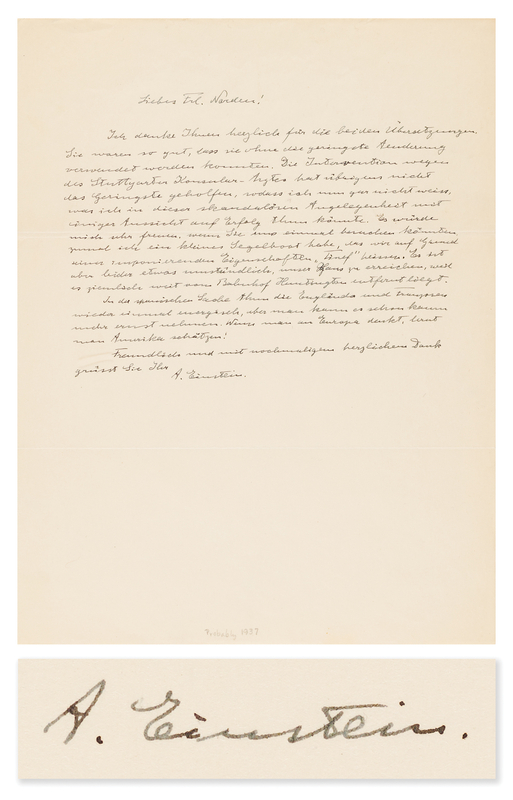 Liebes Frl. Norden!
Ich danke Ihnen herzlich für die beiden Übersetzungen.
Sie waren so gut, dass sie ohne die geringste Aenderung
verwendet werden konnten. Die Intervention wegen
des Stuttgarter Konsular-Arztes hat übrigens nicht
das Geringste geholfen, sodass ich nun gar nicht weiss,
was ich in dieser skandalösen Angelegenheit mit
einiger Aussicht auf Erfolg thun könnte. Es würde
mich sehr freuen, wenn Sie uns einmal besuchen könnten,
zumal ich ein kleines Segelboot habe, das wir auf Grund
seiner imponierenden Eigenschaften „Tinef" heissen. Es ist
aber leider etwas umständlich, unser Haus zu erreichen, weil
es ziemlich weit vom Bahnhof Huntington entfernt liegt.
In der Sache thun die Engländer und Franzosen
wieder einmal energisch, aber man kann es schon kaum
mehr ernst nehmen. Wenn man an Europa denkt, lernt
man Amerika schätzen!
Freundlich und mit nochmaligem herzlichem Dank
grüsst Sie Ihr
A. Einstein.
Probably 1937
A. Einstein.